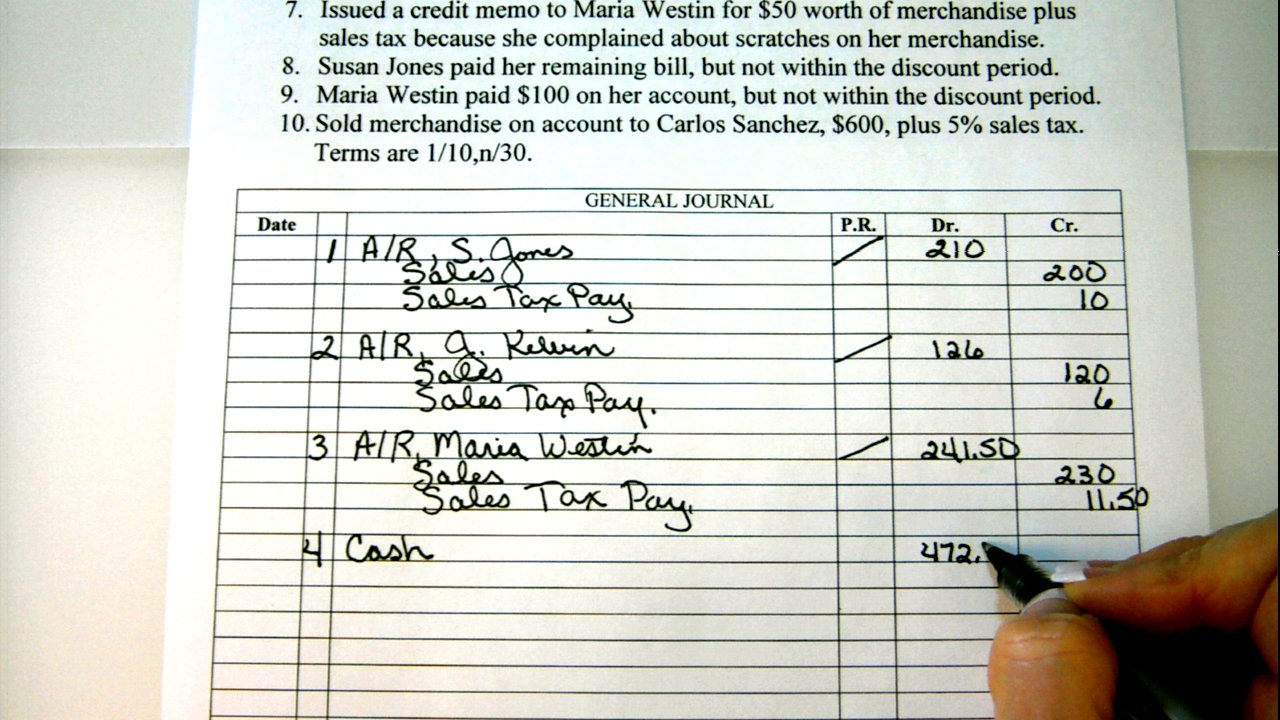 7. Issued a credit memo to Maria Westin for $50 worth of merchandise plus
sales tax because she complained about scratches on her merchandise.
8. Susan Jones paid her remaining bill, but not within the discount period.
9. Maria Westin paid $100 on her account, but not within the discount period.
10. Sold merchandise on account to Carlos Sanchez, $600, plus 5% sales tax.
Terms are 1/10,n/30.
GENERAL JOURNAL
Date P.R. Dr. Cr.
1 A/R, S. Jones 210
Sales 200
Sales Tax Pay. 10
2 A/R, J. Kelvin 126
Sales 120
Sales Tax Pay. 6
3 A/R, Maria Westin 241.50
Sales 230
Sales Tax Pay. 11.50
4 Cash 472.